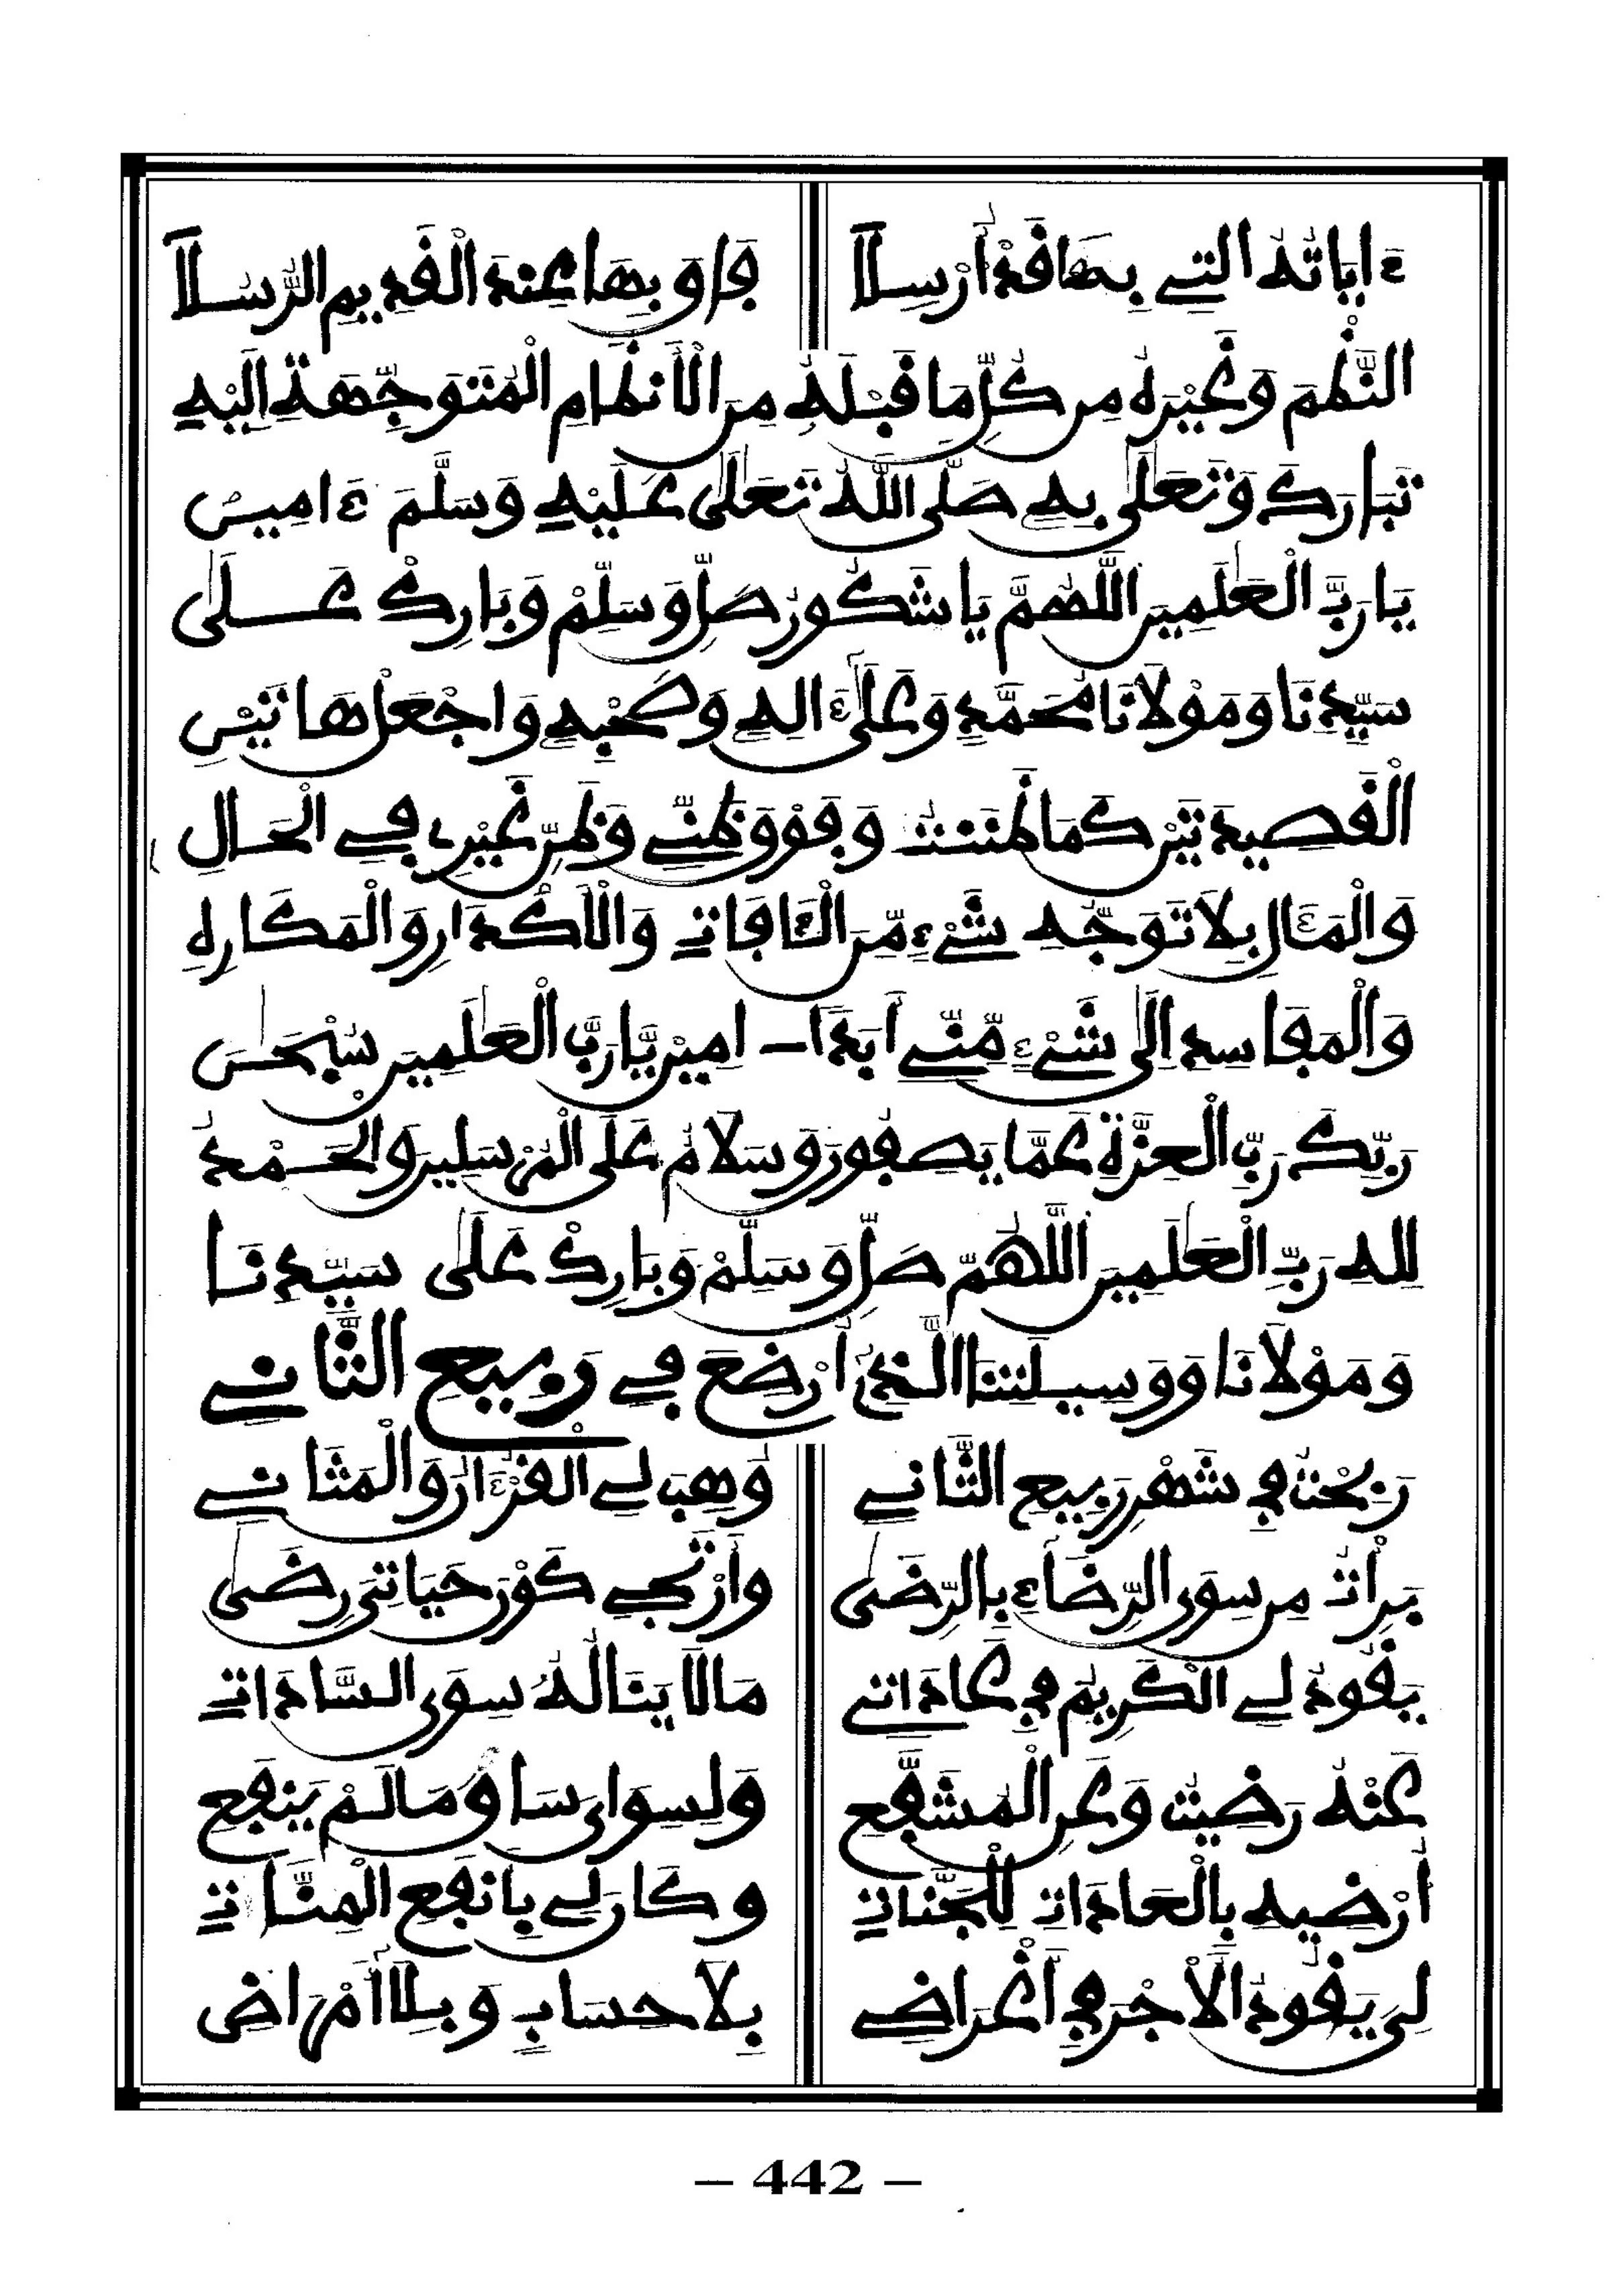 ءاياتُهُ التِي بِهَا قَدْ أُرْسِلَا فَاوَ بِهَا عِنْدَ الْقَدِيمِ الرُّسُلَا
النَّظْمَ وَغَيْرَهُ مِن كُلِّ مَا قَبْلَهُ مِنَ الْأَنْظَامِ الْمُتَوَجِّهَةِ إِلَيْهِ
تَبَارَكَ وَتَعَلَى بِهِ صَلَّى اللَّهُ تَعَلَى عَلَيْهِ وَسَلَّمَ ءَامِين
يَا رَبَّ الْعَلَمِينَ اللَّهُمَّ يَا شَكُورُ صَلِّ وَسَلِّمْ وَبَارِكْ عَلَى
سَيِّدِنَا وَمَوْلَانَا مُحَمَّدٍ وَعَلَى ءَالِهِ وَصَحْبِهِ وَاجْعَلْ هَاتَيْنِ
الْقَصِيدَتَيْنِ كَمَا ظَنَنتُ وَفَوْقَ ظَنِّي وَظَنِّ غَيْرِي فِي الْحَالِ
وَالْمَئَالِ بِلَا تَوَجُّهِ شَيْءٍ مِّنَ الْئَافَاتِ وَالْأَكْدَارِ وَالْمَكَارِهِ
وَالْمَفَاسِدِ إِلَى شَيْءٍ مِّنِّي أَبَدًا ـ امِين يَا رَبَّ الْعَلَمِينَ سُبْحَنَ
رَبِّكَ رَبِّ الْعِزَّةِ عَمَّا يَصِفُونَ وَسَلَامٌ عَلَى الْمُرْسَلِينَ وَالْحَمْدُ
لِلهِ رَبِّ الْعَلَمِينَ اللَّهُمَّ صَلِّ وَسَلِّمْ وَبَارِكْ عَلَى سَيِّدِنَا
وَمَوْلَانَا وَوَسِيلَتِنَا الَّذِي أُرْضِعَ فِي رَبِيعِ الثَّانِي
رَبِحْتُ فِي شَهْرِ رَبِيعِ الثَّانِي وَهَبَ لِي الْقُرْءَانَ وَالْمَثَانِي
بَرَأْتُ مِن سِوَى الرِّضَاءِ بِالرِّضَى وَأَرْتَجِي كَوْنَ حَيَاتِي رِضَى
يَقُودُ لِي الْكَرِيمُ فِي عَادَاتِي مَا لَا يَنَالُهُ سِوَى السَّادَاتِ
عَنْهُ رَضِيتُ وَعَنِ الْمُشَفَّعِ وَلِسِوَاىَ سَاقَ مَا لَمْ يَنْفَعِ
أُرْضِيهِ بِالْعَادَاتِ لِلْجَنَّاتِ وَكَانَ لِي بِأَنْفَعِ الْمِنَّاتِ
لِيَ يَقُودُ الْأَجْرَ فِي أَغْرَاضِي بِلَا حِسَابٍ وَبِلَا أَمْرَاضِ
— 442 —